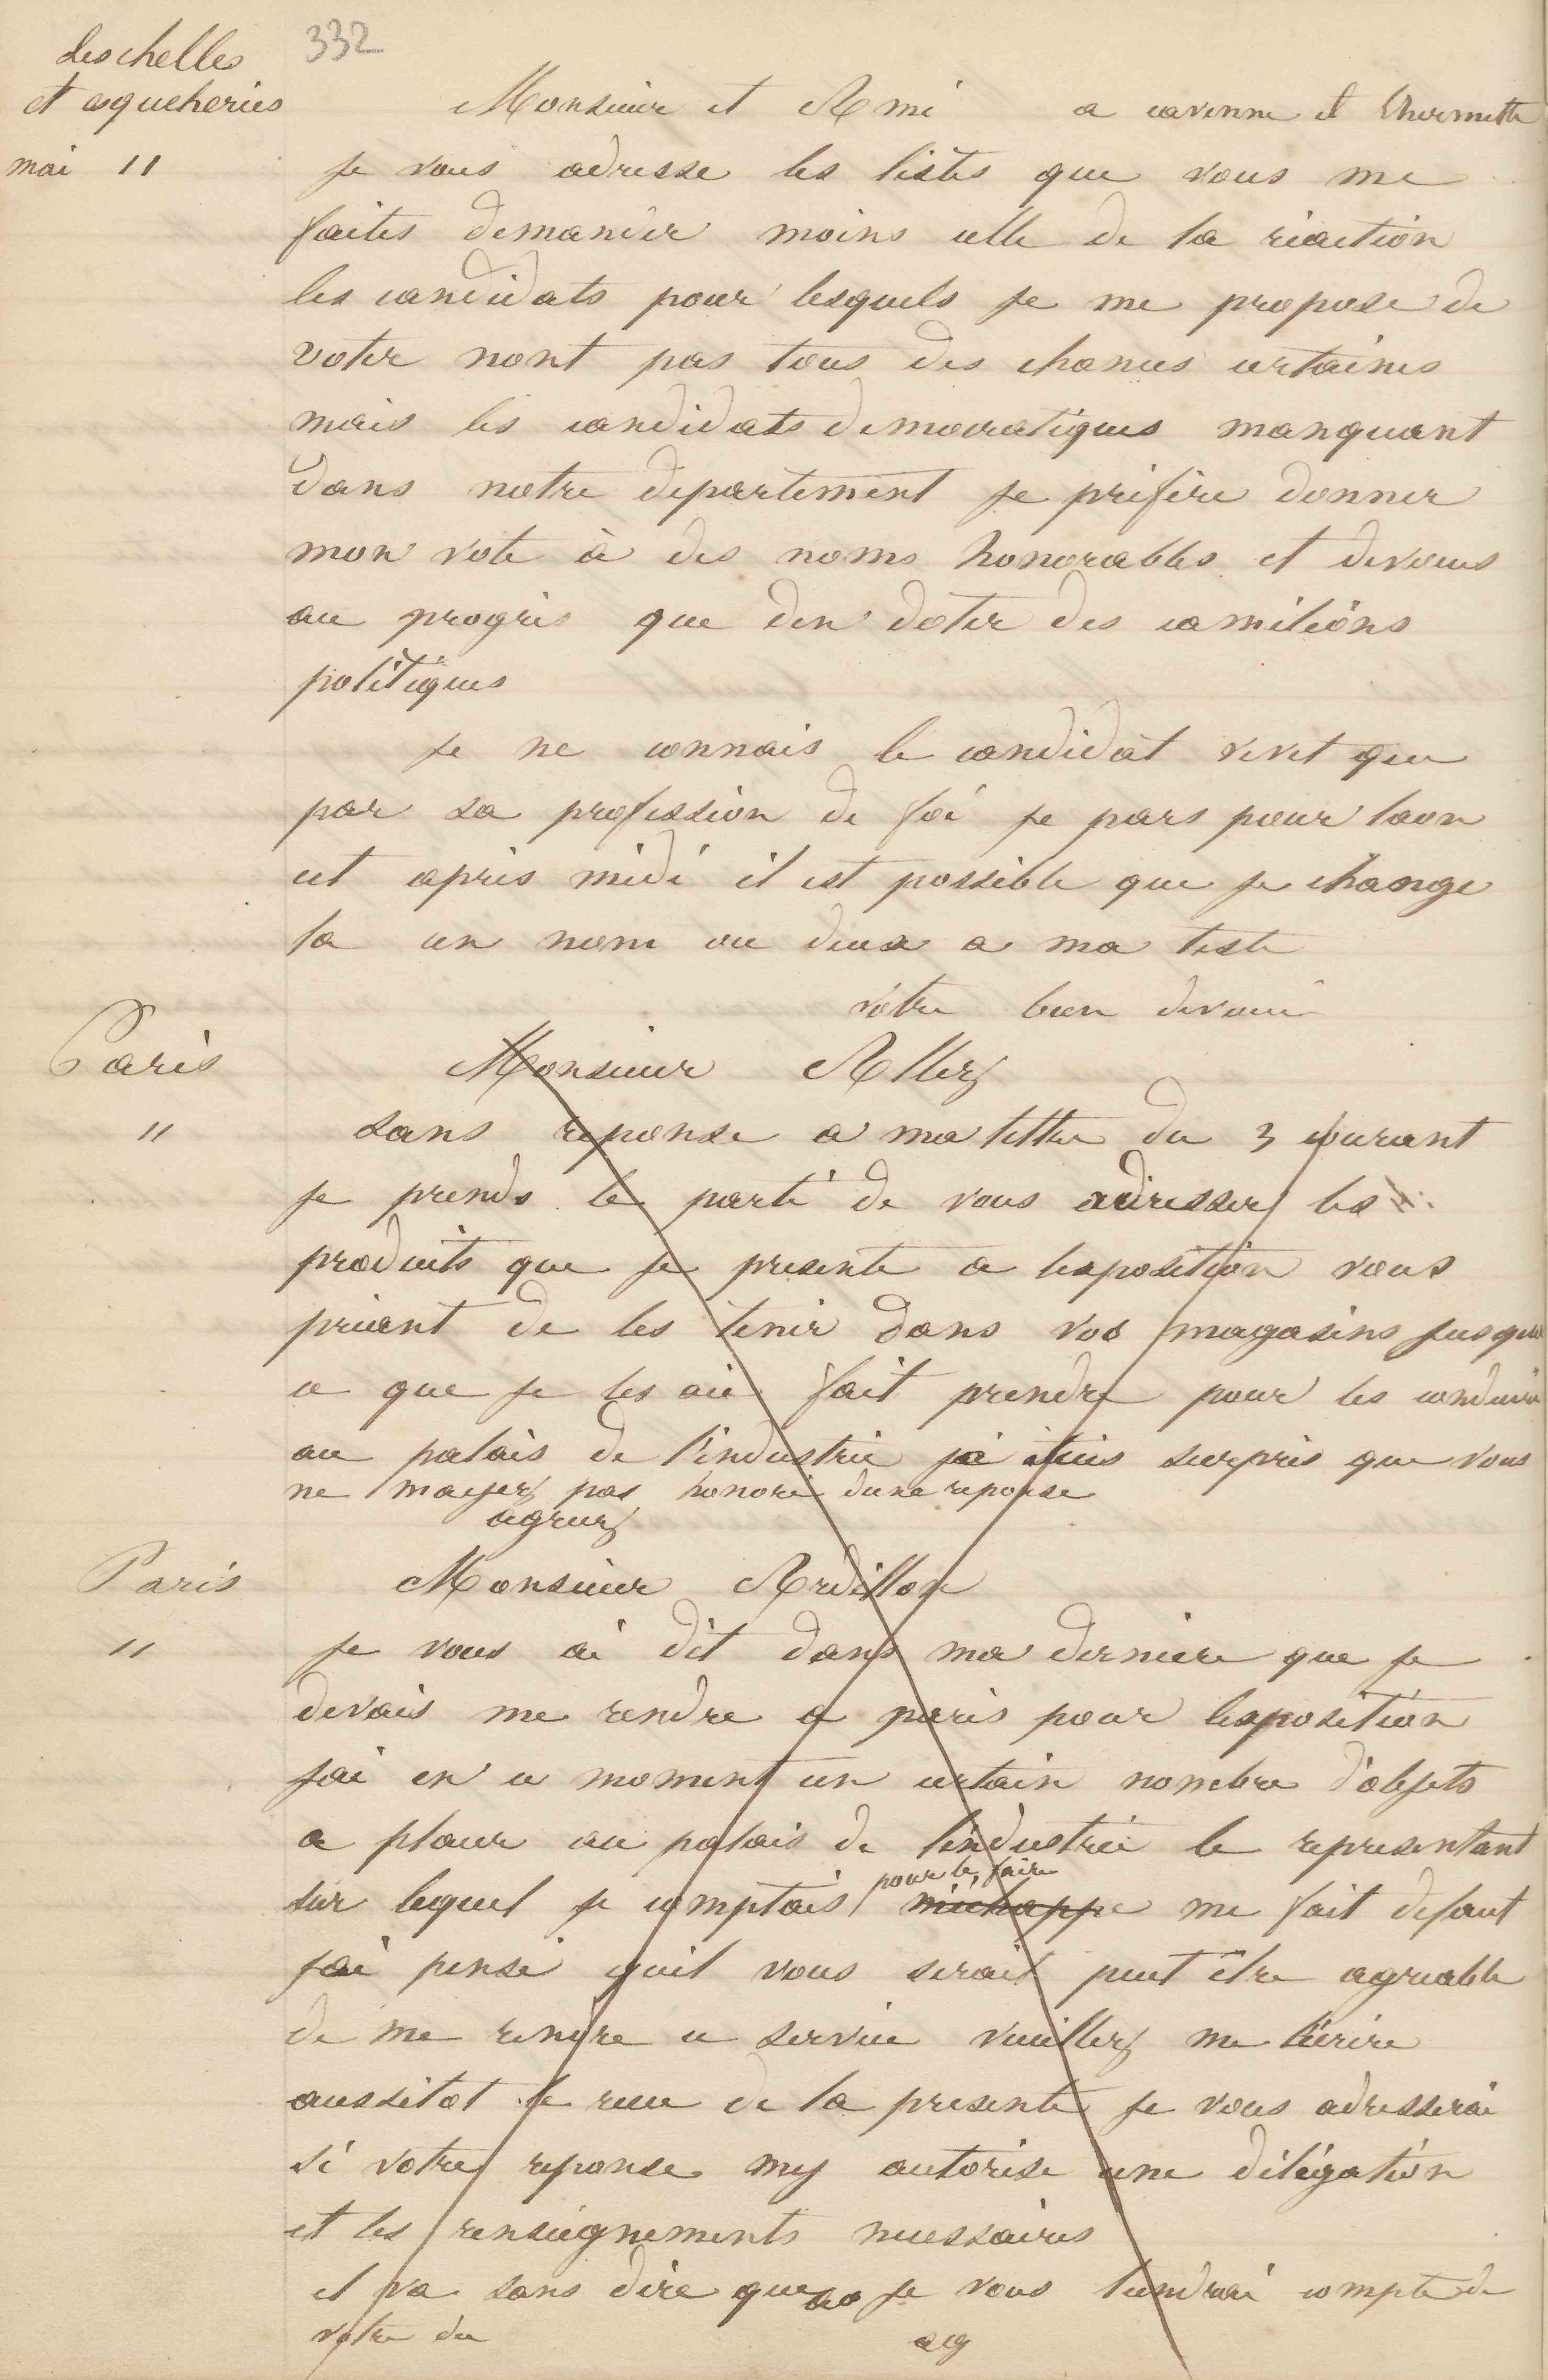 332
Leschelles
et esqueheries
mai 11
Monsieur et Ami a cavenne et Lhermitte
je vous adresse les listes que vous me
faites demander moins celle de la réaction
les candidats pour lesquels je me propose de
voter nont pas tous des chances certaines
mais les candidats democratiques manquant
dans notre departement je préfère donner
mon vote à des noms honorables et devoues
au progrès que den doter des caméléons
politiques
je ne connais le candidat vevet que
par sa profession de foi je pars pour laon
cet après midi il est possible que je change
la un nom ou deux a ma liste
votre bien devoué
Paris
Monsieur Allez
"
sans reponse a ma lettre du 3 courant
je prends le parti de vous adresser les
produits que je presente a lexposition vous
priant de les tenir dans vos magasins jusqua
ce que je les aie fait prendre pour les conduire
au palais de l'industrie jé étais surpris que vous
ne mayez pas honoré dune reponse
agreez
Paris
Monsieur Ardillon
"
je vous ai dit dans ma derniere que je
devais me rendre a paris pour lexposition
jai en ce moment un certain nombre d'objets
a placer au palais de l'industrie le representant
sur lequel je comptais pour le faire méchappe me fait defaut
jai pensé quil vous serait peut être agreable
de me rendre ce service veuillez me lécrire
aussitot le recu de la presente je vous adresserai
si votre reponse my autorise une délégation
et les renseignements necessaires
il va sans dire que je vous tiendrai compte de
votre du ag